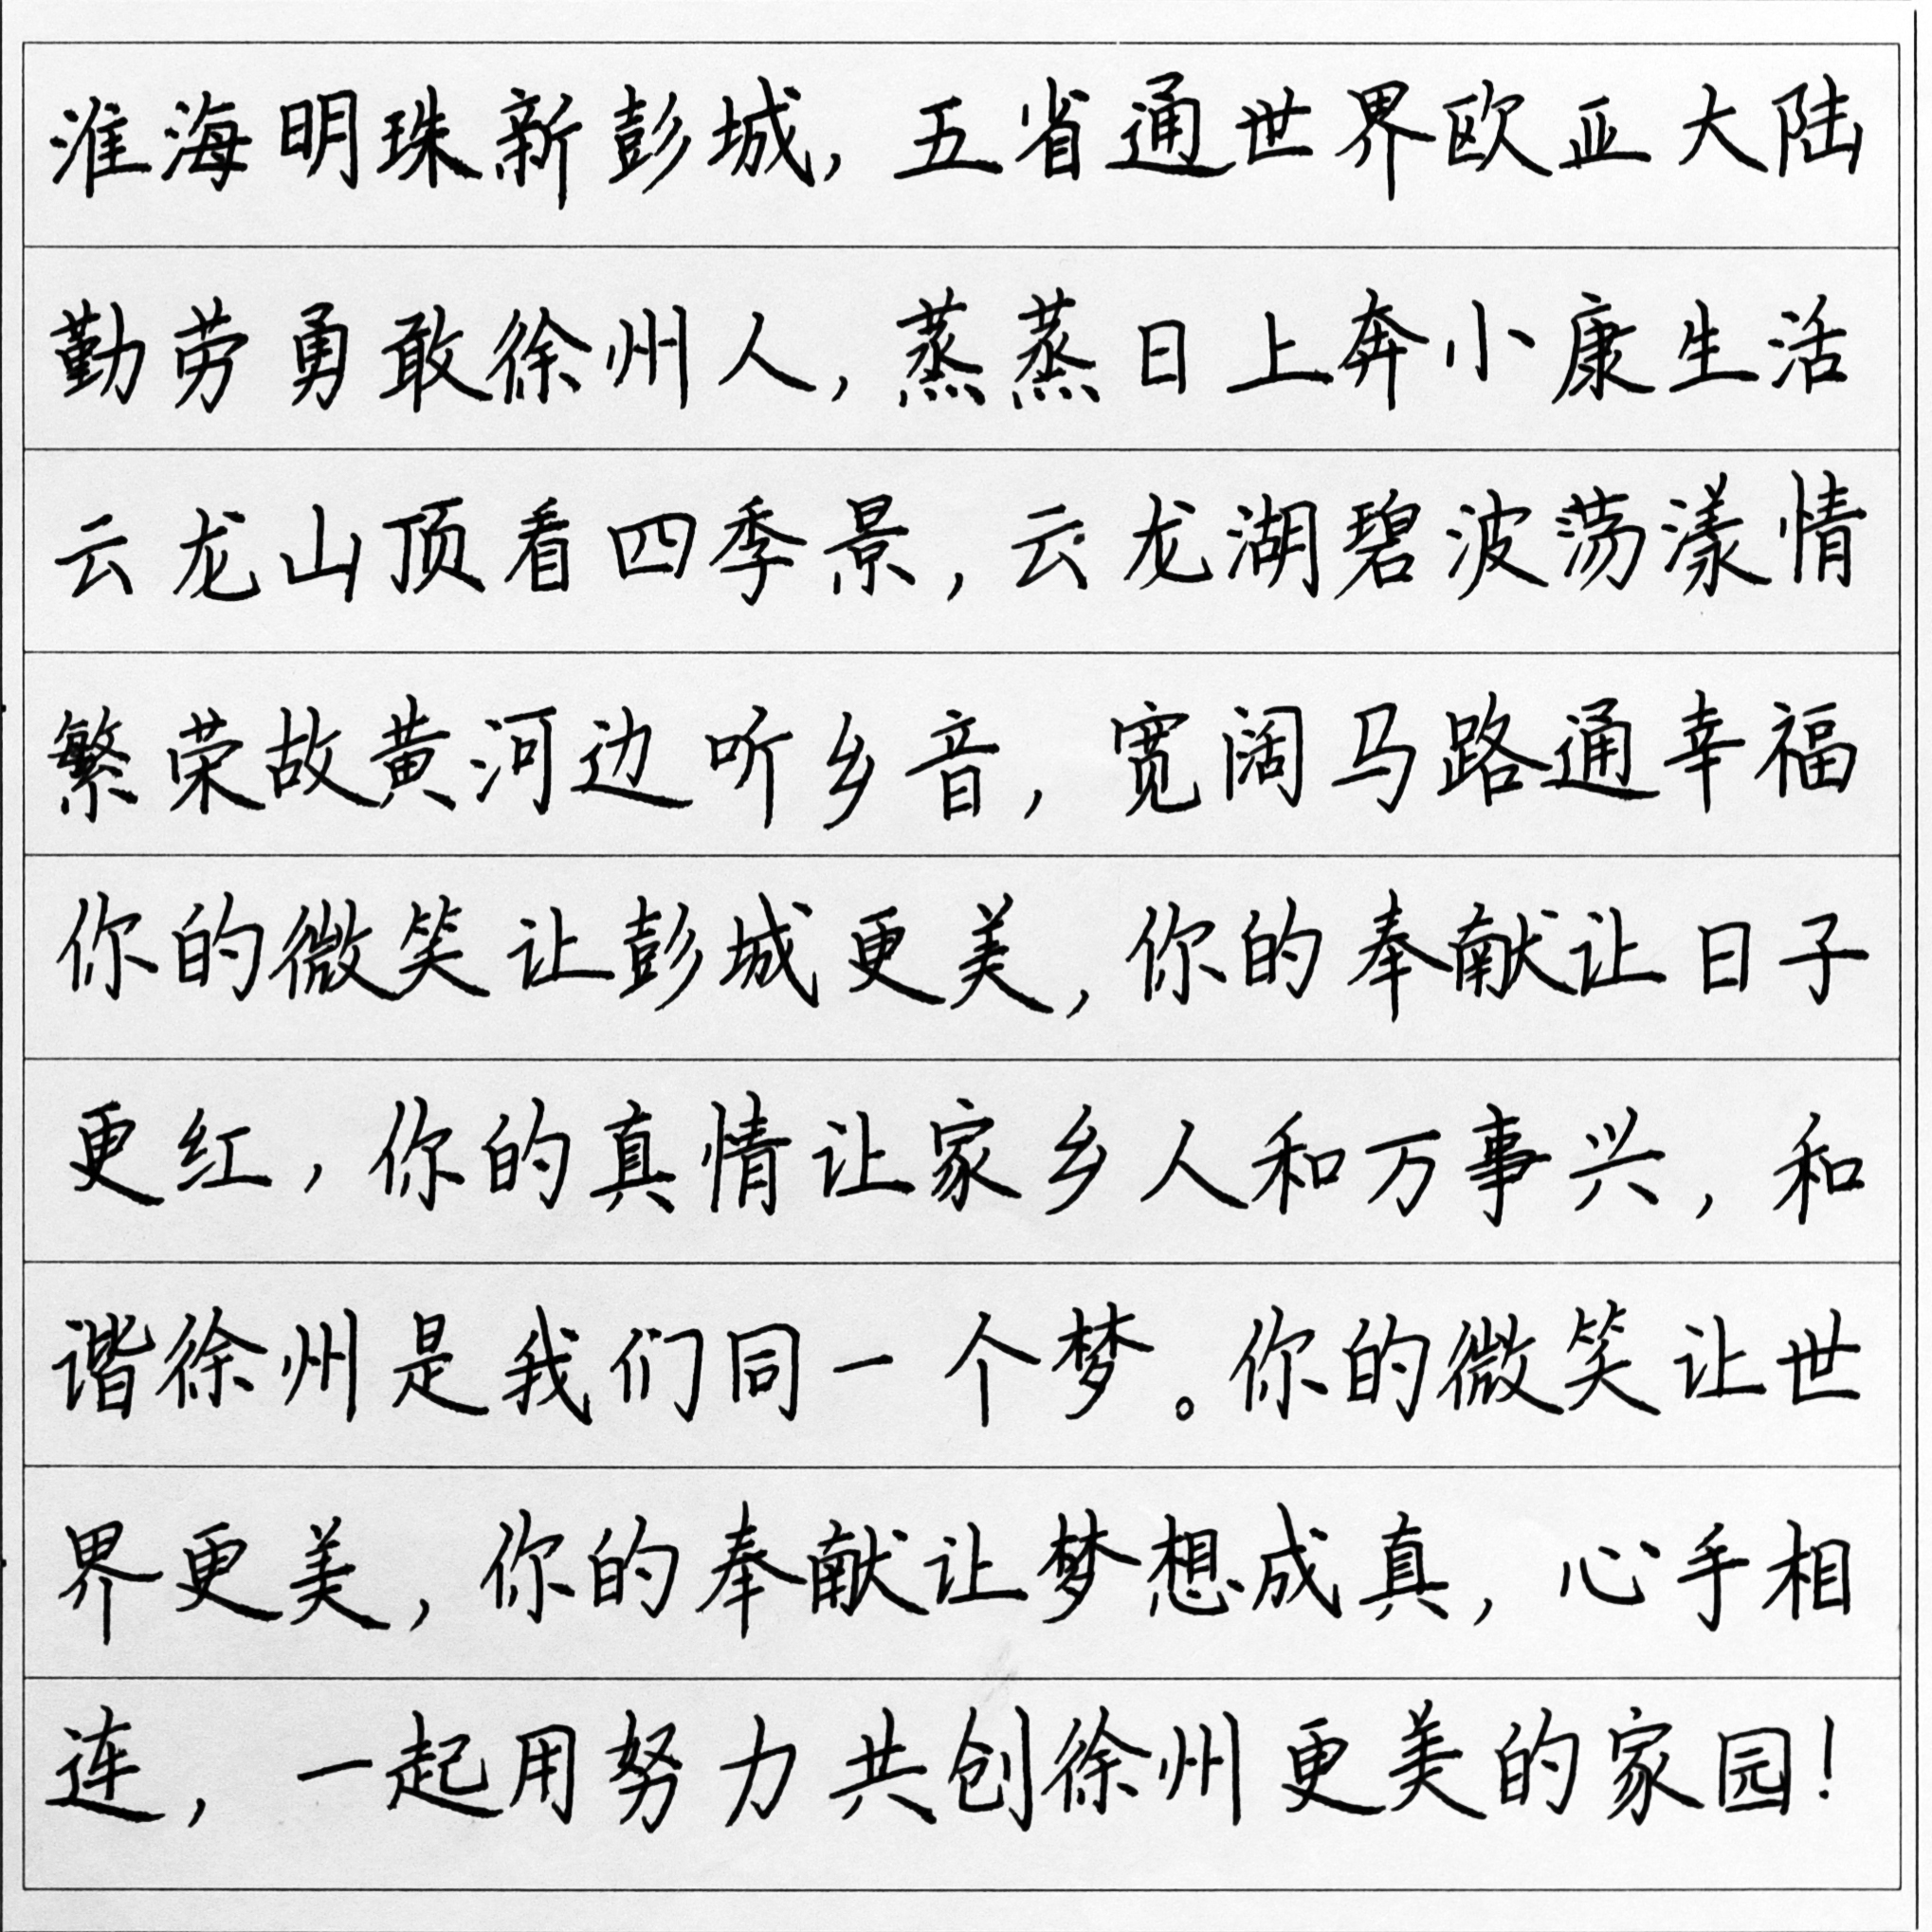 淮海明珠新彭城,五省通世界欧亚大陆
勤劳勇敢徐州人,蒸蒸日上奔小康生活
云龙山顶看四季景,云龙湖碧波荡漾情
繁荣故黄河边听乡音,宽阔马路通幸福
你的微笑让彭城更美,你的奉献让日子
更红,你的真情让家乡人和万事兴,和
谐徐州是我们同一个梦。你的微笑让世
界更美,你的奉献让梦想成真,心手相
连,一起用努力共创徐州更美的家园!